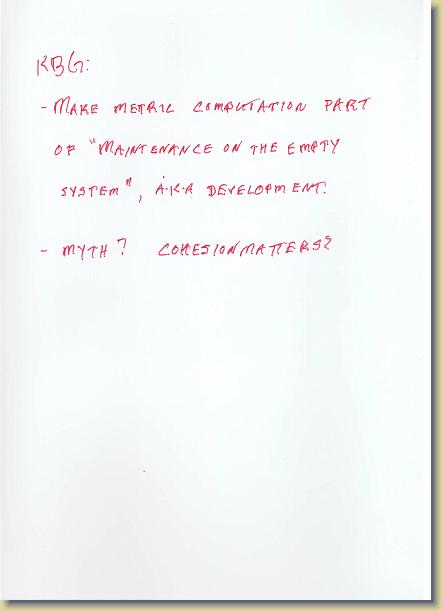 KBG:
- MAKE METRIC COMPUTATION PART
OF "MAINTENANCE ON THE EMPTY
SYSTEM", A.K.A DEVELOPMENT.
- MYTH? COHESION MATTERS?